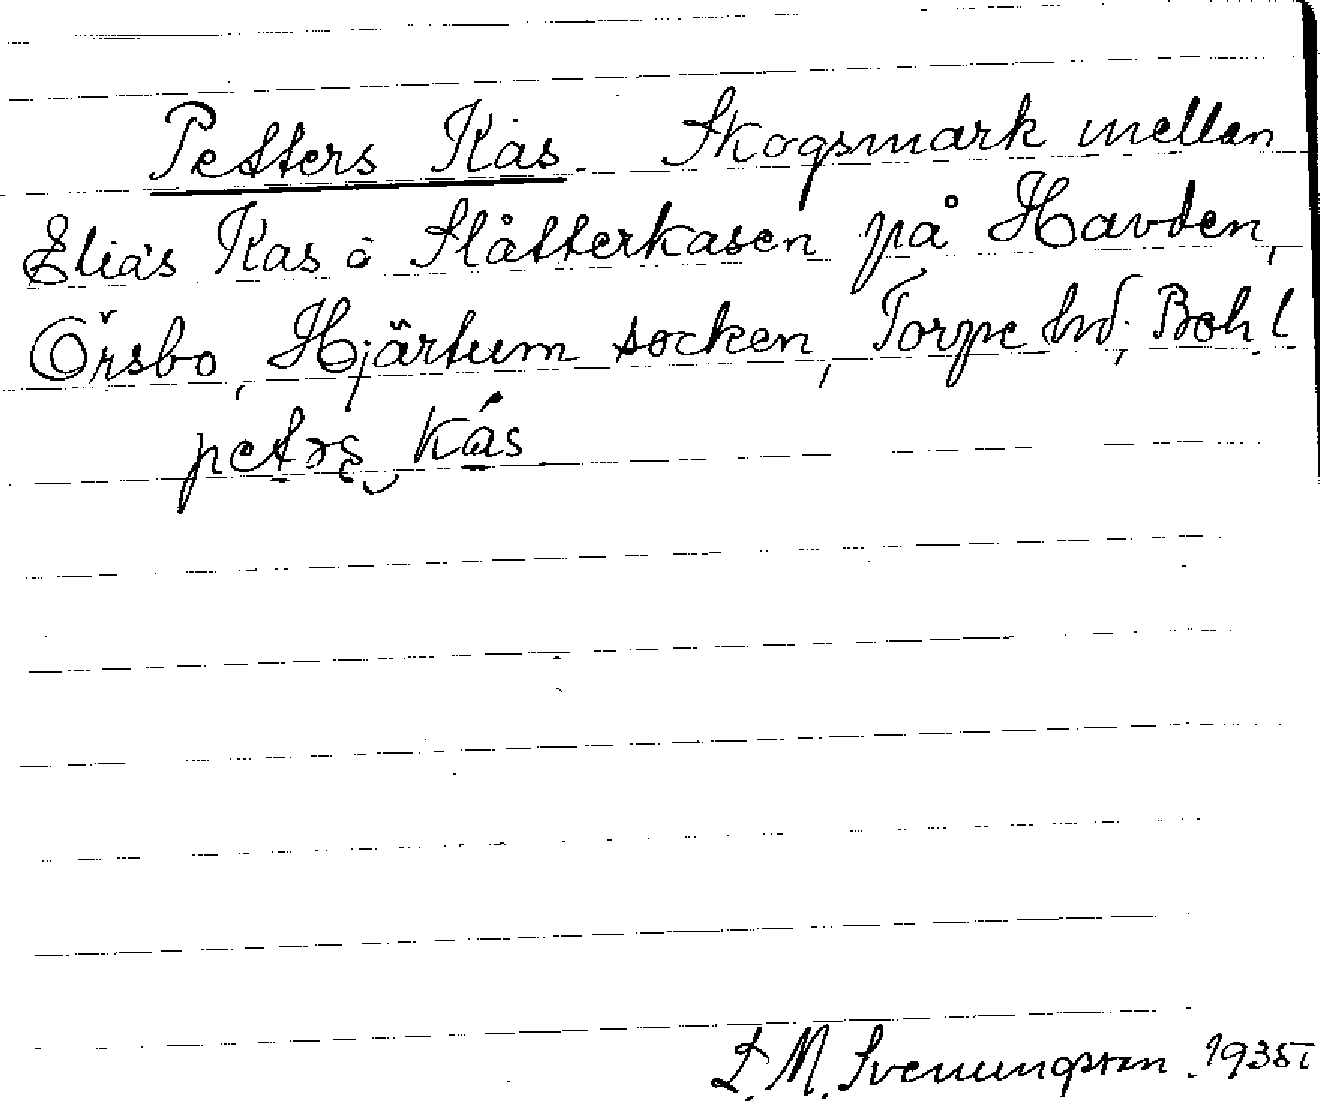 Petters Kas. Skogsmark mellan
Elias Kas å Slåtterkasen på Havden,
Örsbo, Hjärtum socken, Torpe hd, Boh. l
petrs kás
L. M. Svenungsson. 1935